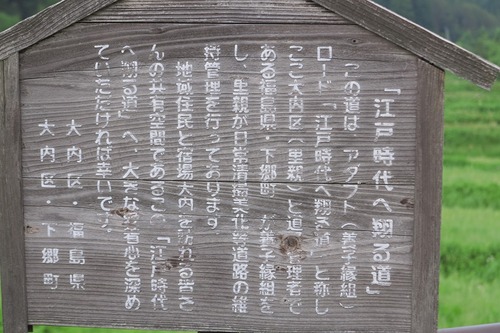 「江戸時代へ翔る道」
この道は、アダプト(養子縁組)
ロード「江戸時代へ翔る道」と称し
ここ大内区(里親)と道路管理者で
ある福島県・下郷町が養子縁組を
し、里親が日常清掃美化等道路の維
持管理を行っております。
地域住民と宿場大内を訪れる皆さ
んの共有空間である、「江戸時代
へ翔る道」へ、大きな愛着心を深め
ていただければ幸いです。
大内区・福島県
大内区・下郷町